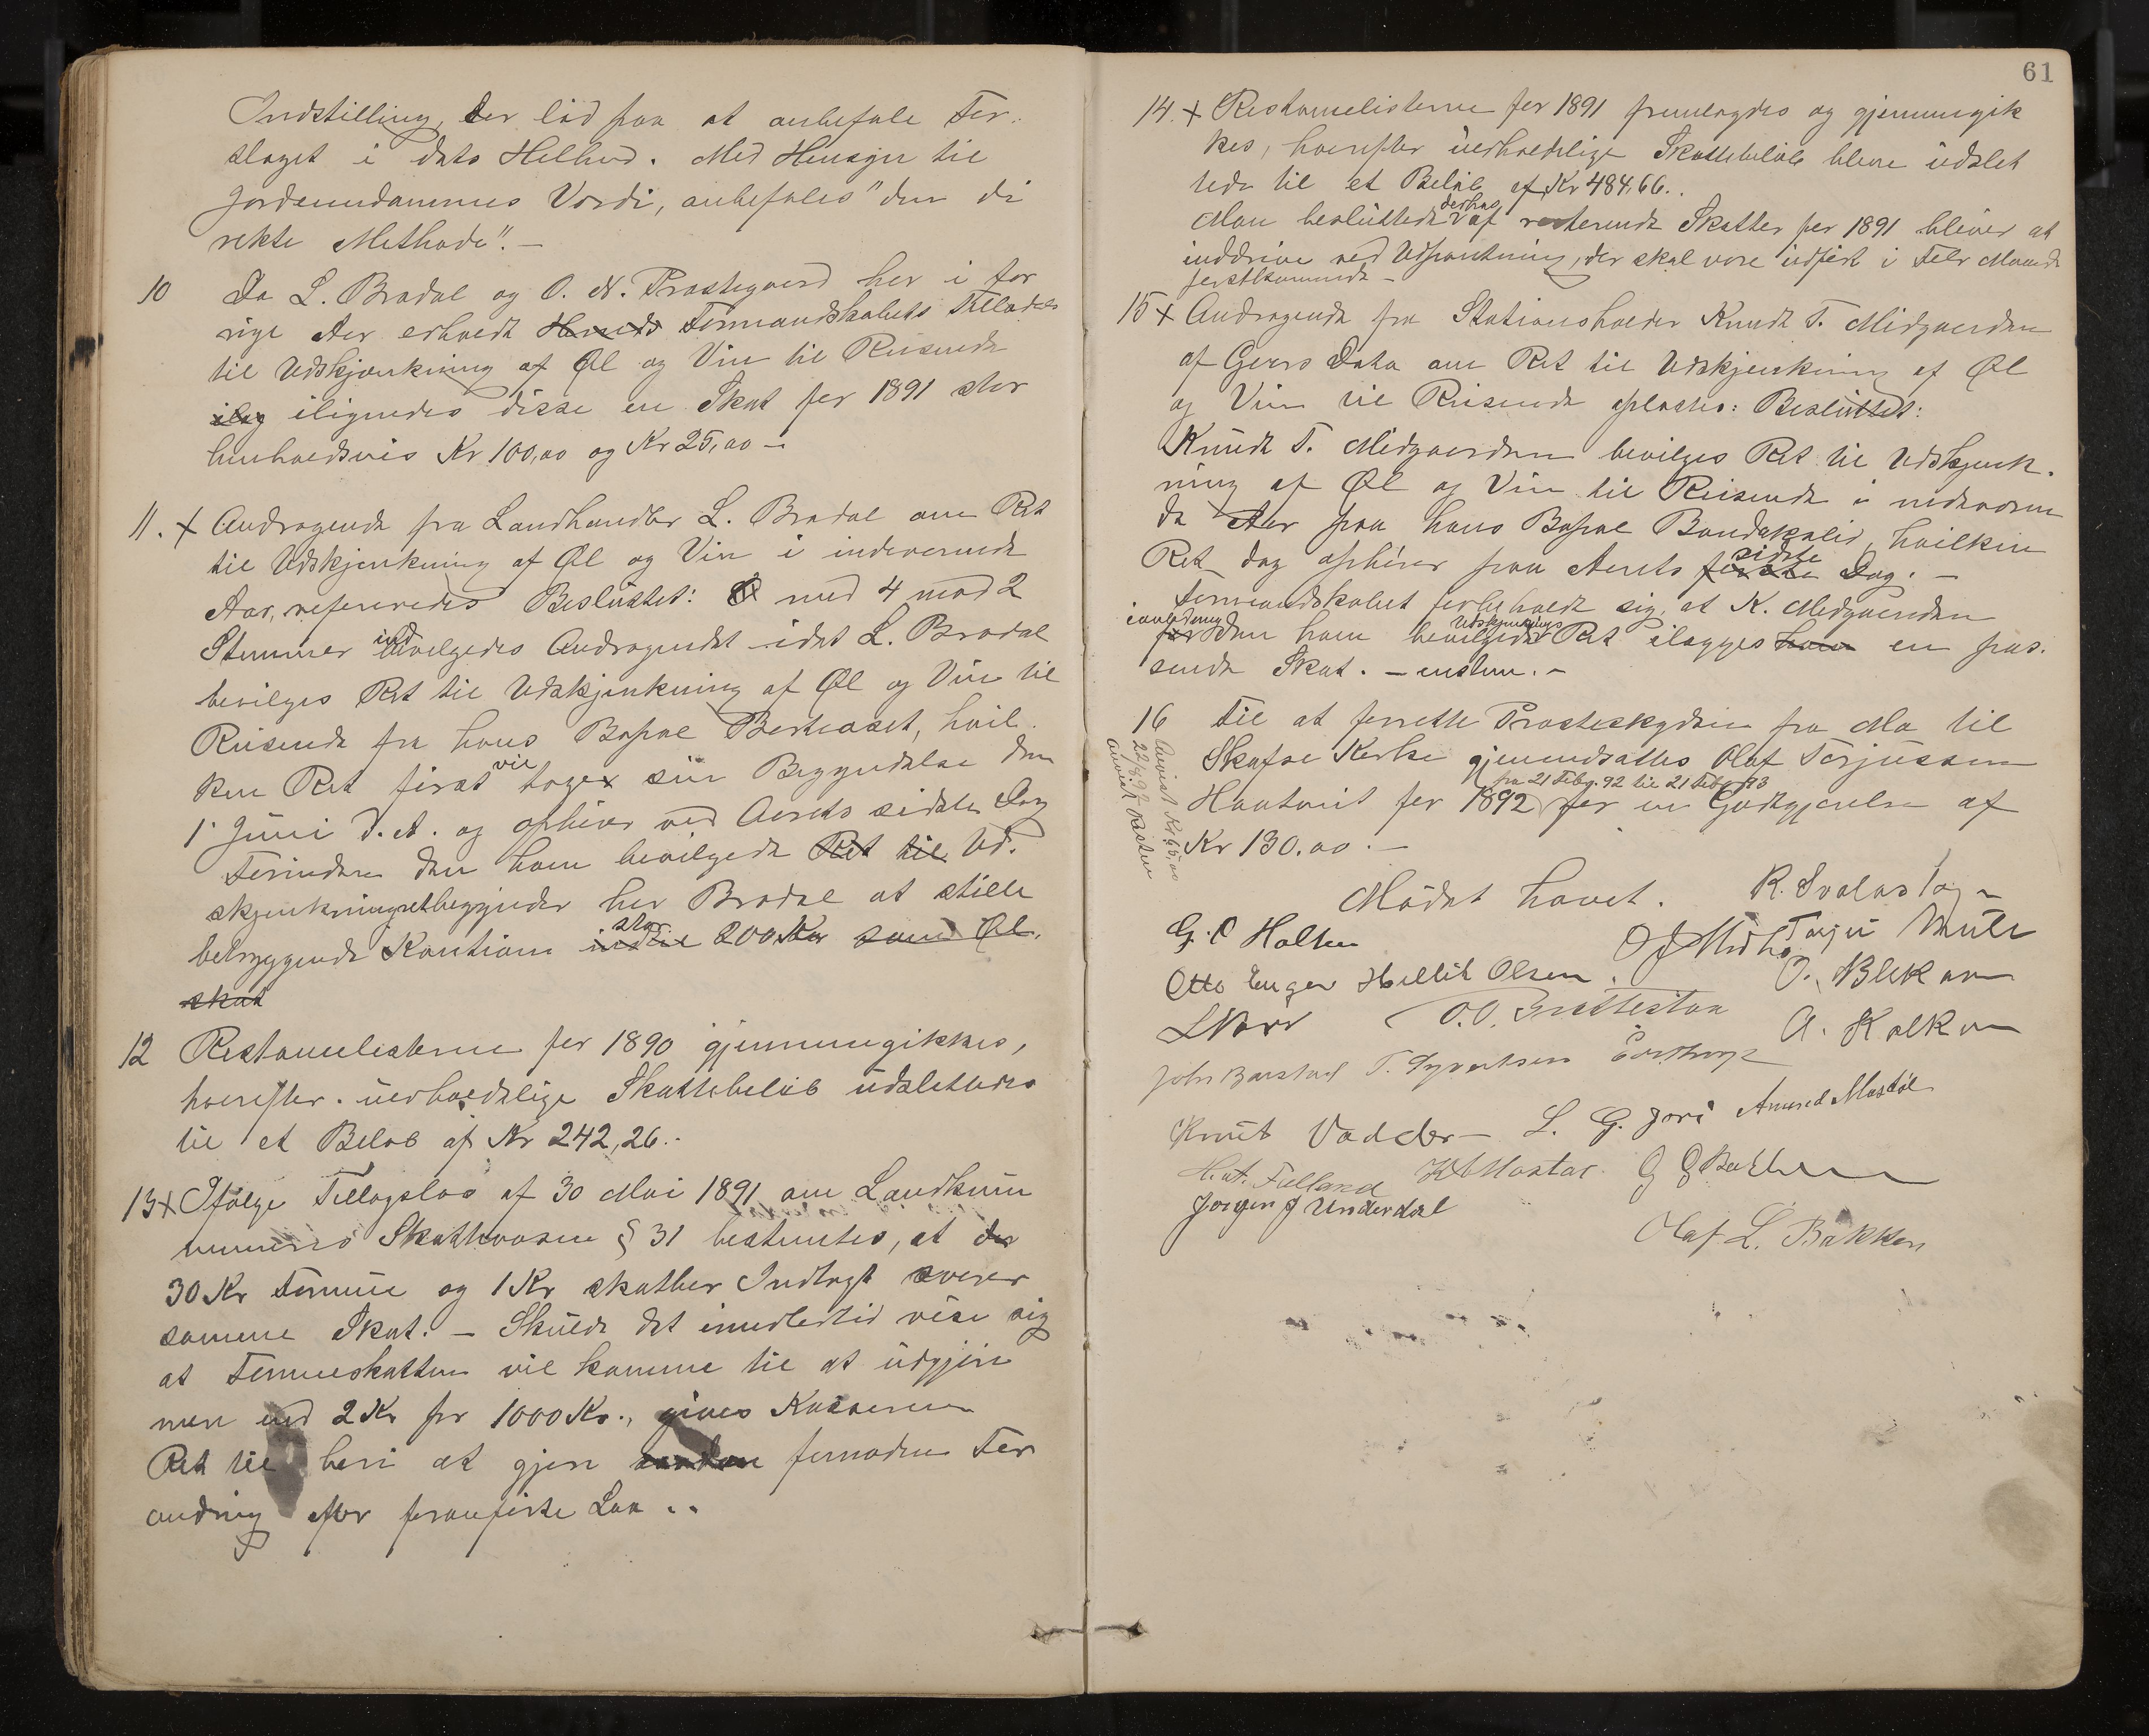 Indstilling, der lød paa at anbefale For-
slaget i dets Helhed. Med Hensyn til
Jordeiendommes Værdi, anbefales "den di
rekte Methode". —
10 Da L. Bradal og O. N. Præstegaard her i for
rige Aar erholdt Herreds Formandskabets Tilladelse
til Udskjænkning af Øl og Vin til Reisende
ilig ilignedes disse en Skat for 1891 stor
henholdsvis Kr 100,00 og Kr 25,00 —
11. x Andragende fra Landhandler L. Bradal om Ret
til Udskjenkning af Øl og Vin i indeværende
Aar, refereredes Besluttet: med 4 mod 2
Stemmer indvilgedes Andragendet idet L. Bradal
bevilges Ret til Udskjenkning af Øl og Vin til
Reisende fra hans Bopæl, hvil-
ken Ret først vil tage sin Begyndelse den
1 Juni d. A. og ophører ved Aarets sidste Dag
Forinden den ham bevilgede Ret til Ud-
skjenkningsret begynder har Bradal at stille
betryggende Kaution indtil stor 200 Kr som Øl-
skat
12 Restancelisterne for 1890 gjennemgikkes,
hvorefter uerholdelige Skattebeløb udslettedes
til et Beløb af Kr 242,26.-
13 x Ifølge Tillægslov af 30 Mai 1891 om Landkom
munernes Skattevæsen § 31 bestemtes, at der
30 Kr Formue og 1 Kr skatbar Indtægt svarer
samme Skat. — Skulde det imidlertid vise sig
at Formueskatten vil komme til at udgjøre
mere end 2 Kr pr 1000 Kr., gives Kasseren
Ret til heri at gjøre fornøden For
andring efter paaførte Lov ..
61
14. x Restancelisterne for 1891 fremlagdes og gjennemgik
kes, hvorefter uerholdelige Skattebeløb bleve udslet
tede til et Beløb af Kr 484,66..
Man besluttede derhos at resterende Skatter for 1891 bliver at
inddrive ved Udpantning, der skal være udført i Febr Maaned
førstkommende —
15 x Andragende fra Stationsholder Knudt T. Midgaarden
af Gaars Dato om Ret til Udskjenkning af Øl
og Vin til Reisende oplæstes: Besluttet:
Knudt T. Midgaarden bevilges Ret til Udskjenk-
ning af Øl og Vin til Reisende i indeværen
de Aar paa hans Bopæl Bandakslid, hvilken
Ret dog ophører paa Aarets første sidste Dag. —
Formandskabet forbeholdt sig, at K. Midgaarden
i anledning for den ham bevilgede Udskjenknings Ret ilægges ham en pas-
sende Skat. — enstem. —
16 Til at forrette Præsteskydsen fra Mo til
Skafse Kirke gjenansattes Olaf Torjussen
Haatveit for 1892 fra 21 Febr. 92 til 21 Febr 93 for en Godtgjørelse af
Kr 130.00. —
Anvist Kr 65,00
22/8 92
anvist Resten
Mødet hævet. R. Svalastog
G. O Holten Torju Mule
Otto Enger Hellik Olsen. O. Blekom
O.O. Grottestøa A. Kolkom
John Børstad T. Syvertsen
Knut Vadder L. G. Jore Amund Mostøl
H. A. Felland K Mostøl G G Bakken
Jorgen J Underdal
Olaf L. Bakken